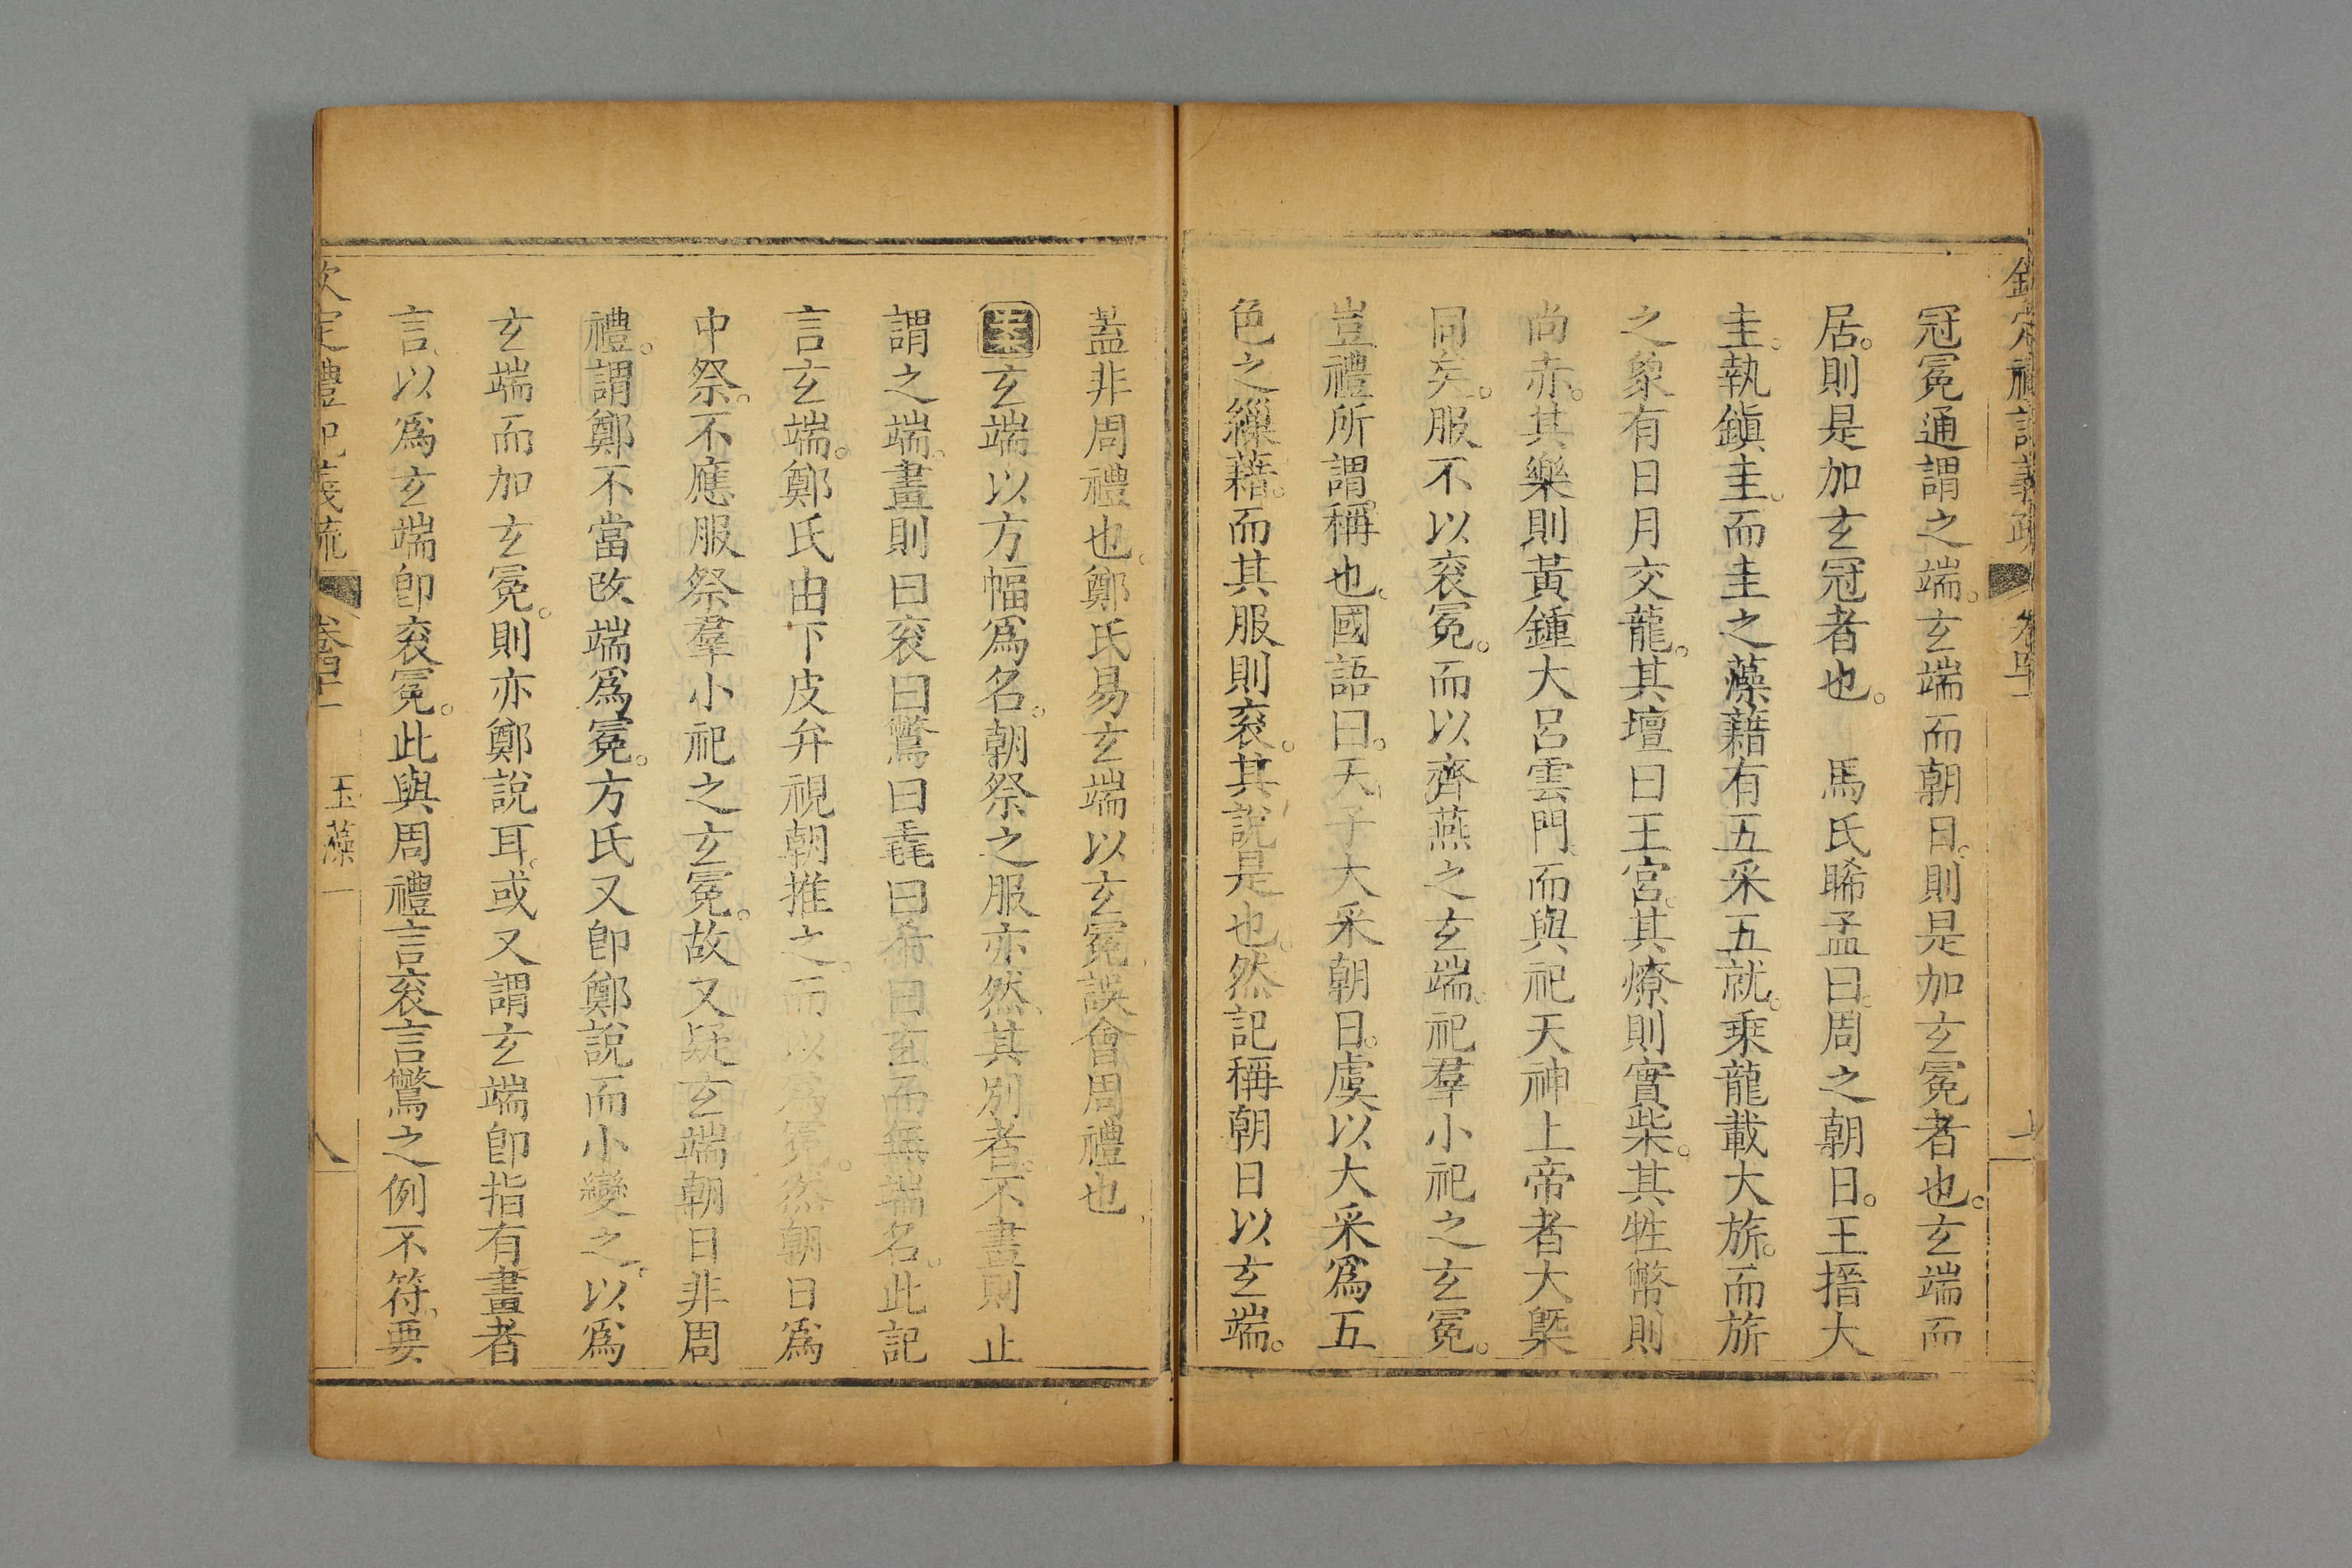 欽定禮記義疏 卷四十一
冠冕通謂之端。玄端而朝日。則是加玄冕者也。玄端而
居。則是加玄冠者也。 馬氏睎孟曰。周之朝日。王搢大
圭。執鎭圭。而圭之藻藉有五采五就。乘龍載大旂。而旂
之象有日月交龍。其壇曰王宮。其燎則實柴。其牲幣則
尚赤。其樂則黃鍾大呂雲門。而與祀天神上帝者大槩
同矣。服不以袞冕。而以齊燕之玄端。祀羣小祀之玄冕。
豈禮所謂稱也。國語曰。天子大采朝日。虞以大采爲五
色之繅藉。而其服則袞。其說是也。然記稱朝日以玄端。
蓋非周禮也。鄭氏易玄端以玄冕。誤會周禮也
玄端以方幅爲名。朝祭之服亦然。其別者。不畫則止
謂之端。畫則曰袞曰鷩曰毳曰希曰玄而無端名。此記
言玄端。鄭氏由下皮弁視朝推之。而以爲冕。然朝日爲
中祭。不應服祭羣小祀之玄冕。故又疑玄端朝日非周
禮。謂鄭不當改端爲冕。方氏又卽鄭說而小變之。以爲
玄端而加玄冕。則亦鄭說耳。或又謂玄端卽指有畫者
言。以爲玄端卽袞冕。此與周禮言袞言鷩之例不符。要
欽定禮記義疏 卷四十一 玉藻一 八